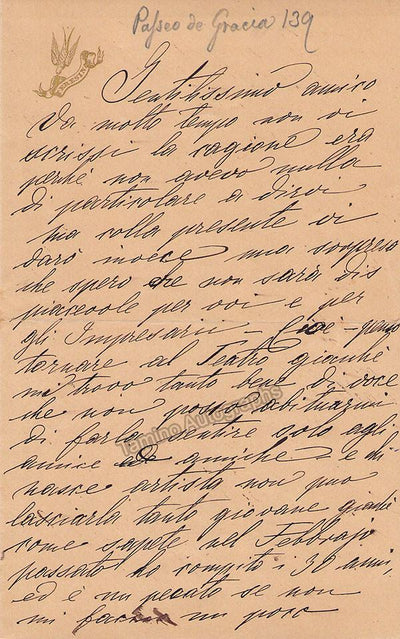 Passeo de Gracia 139
Gentilissimo amico
Da molto tempo non vi
scrissi la cagione era
perché non avevo nulla
di particolare a dirvi
ma colla presente vi
darò invece una sorpresa
che spero che non sarà dis
piacevole per voi e per
gli Impresarii – Cioè – penso
tornare al Teatro giacché
mi trovo tanto bene di voce
che non posso abituarmi
di farla sentire solo agli
amici ed amiche e chi
nasce artista non può
lasciarla tanto giovane giacché
come sapete nel Febbrajo
passato ho compito i 39 anni,
ed è un pecato se non
mi faccia un poco
Tamino Autographs